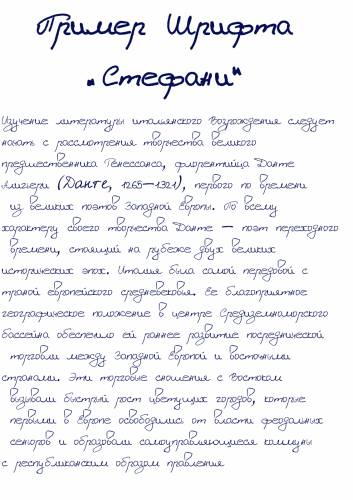 Пример Шрифта
„Стефани“
Изучение литературы итальянского Возрождения следует
начать с рассмотрения творчества великого
предшественника Ренессанса, флорентийца Данте
Алигьери (Данте, 1265—1321), первого по времени
из великих поэтов Западной Европы. По всему
характеру своего творчества Данте — поэт переходного
времени, стоящий на рубеже двух великих
исторических эпох. Италия была самой передовой с
траной европейского средневековья. Ее благоприятное
географическое положение в центре Средиземноморского
бассейна обеспечило ей раннее развитие посреднической
торговли между Западной Европой и восточными
странами. Эти торговые сношения с Востоком
вызывали быстрый рост цветущих городов, которые
первыми в Европе освободились от власти феодальных
сеньоров и образовали самоуправляющиеся коммуны
с республиканским образом правления